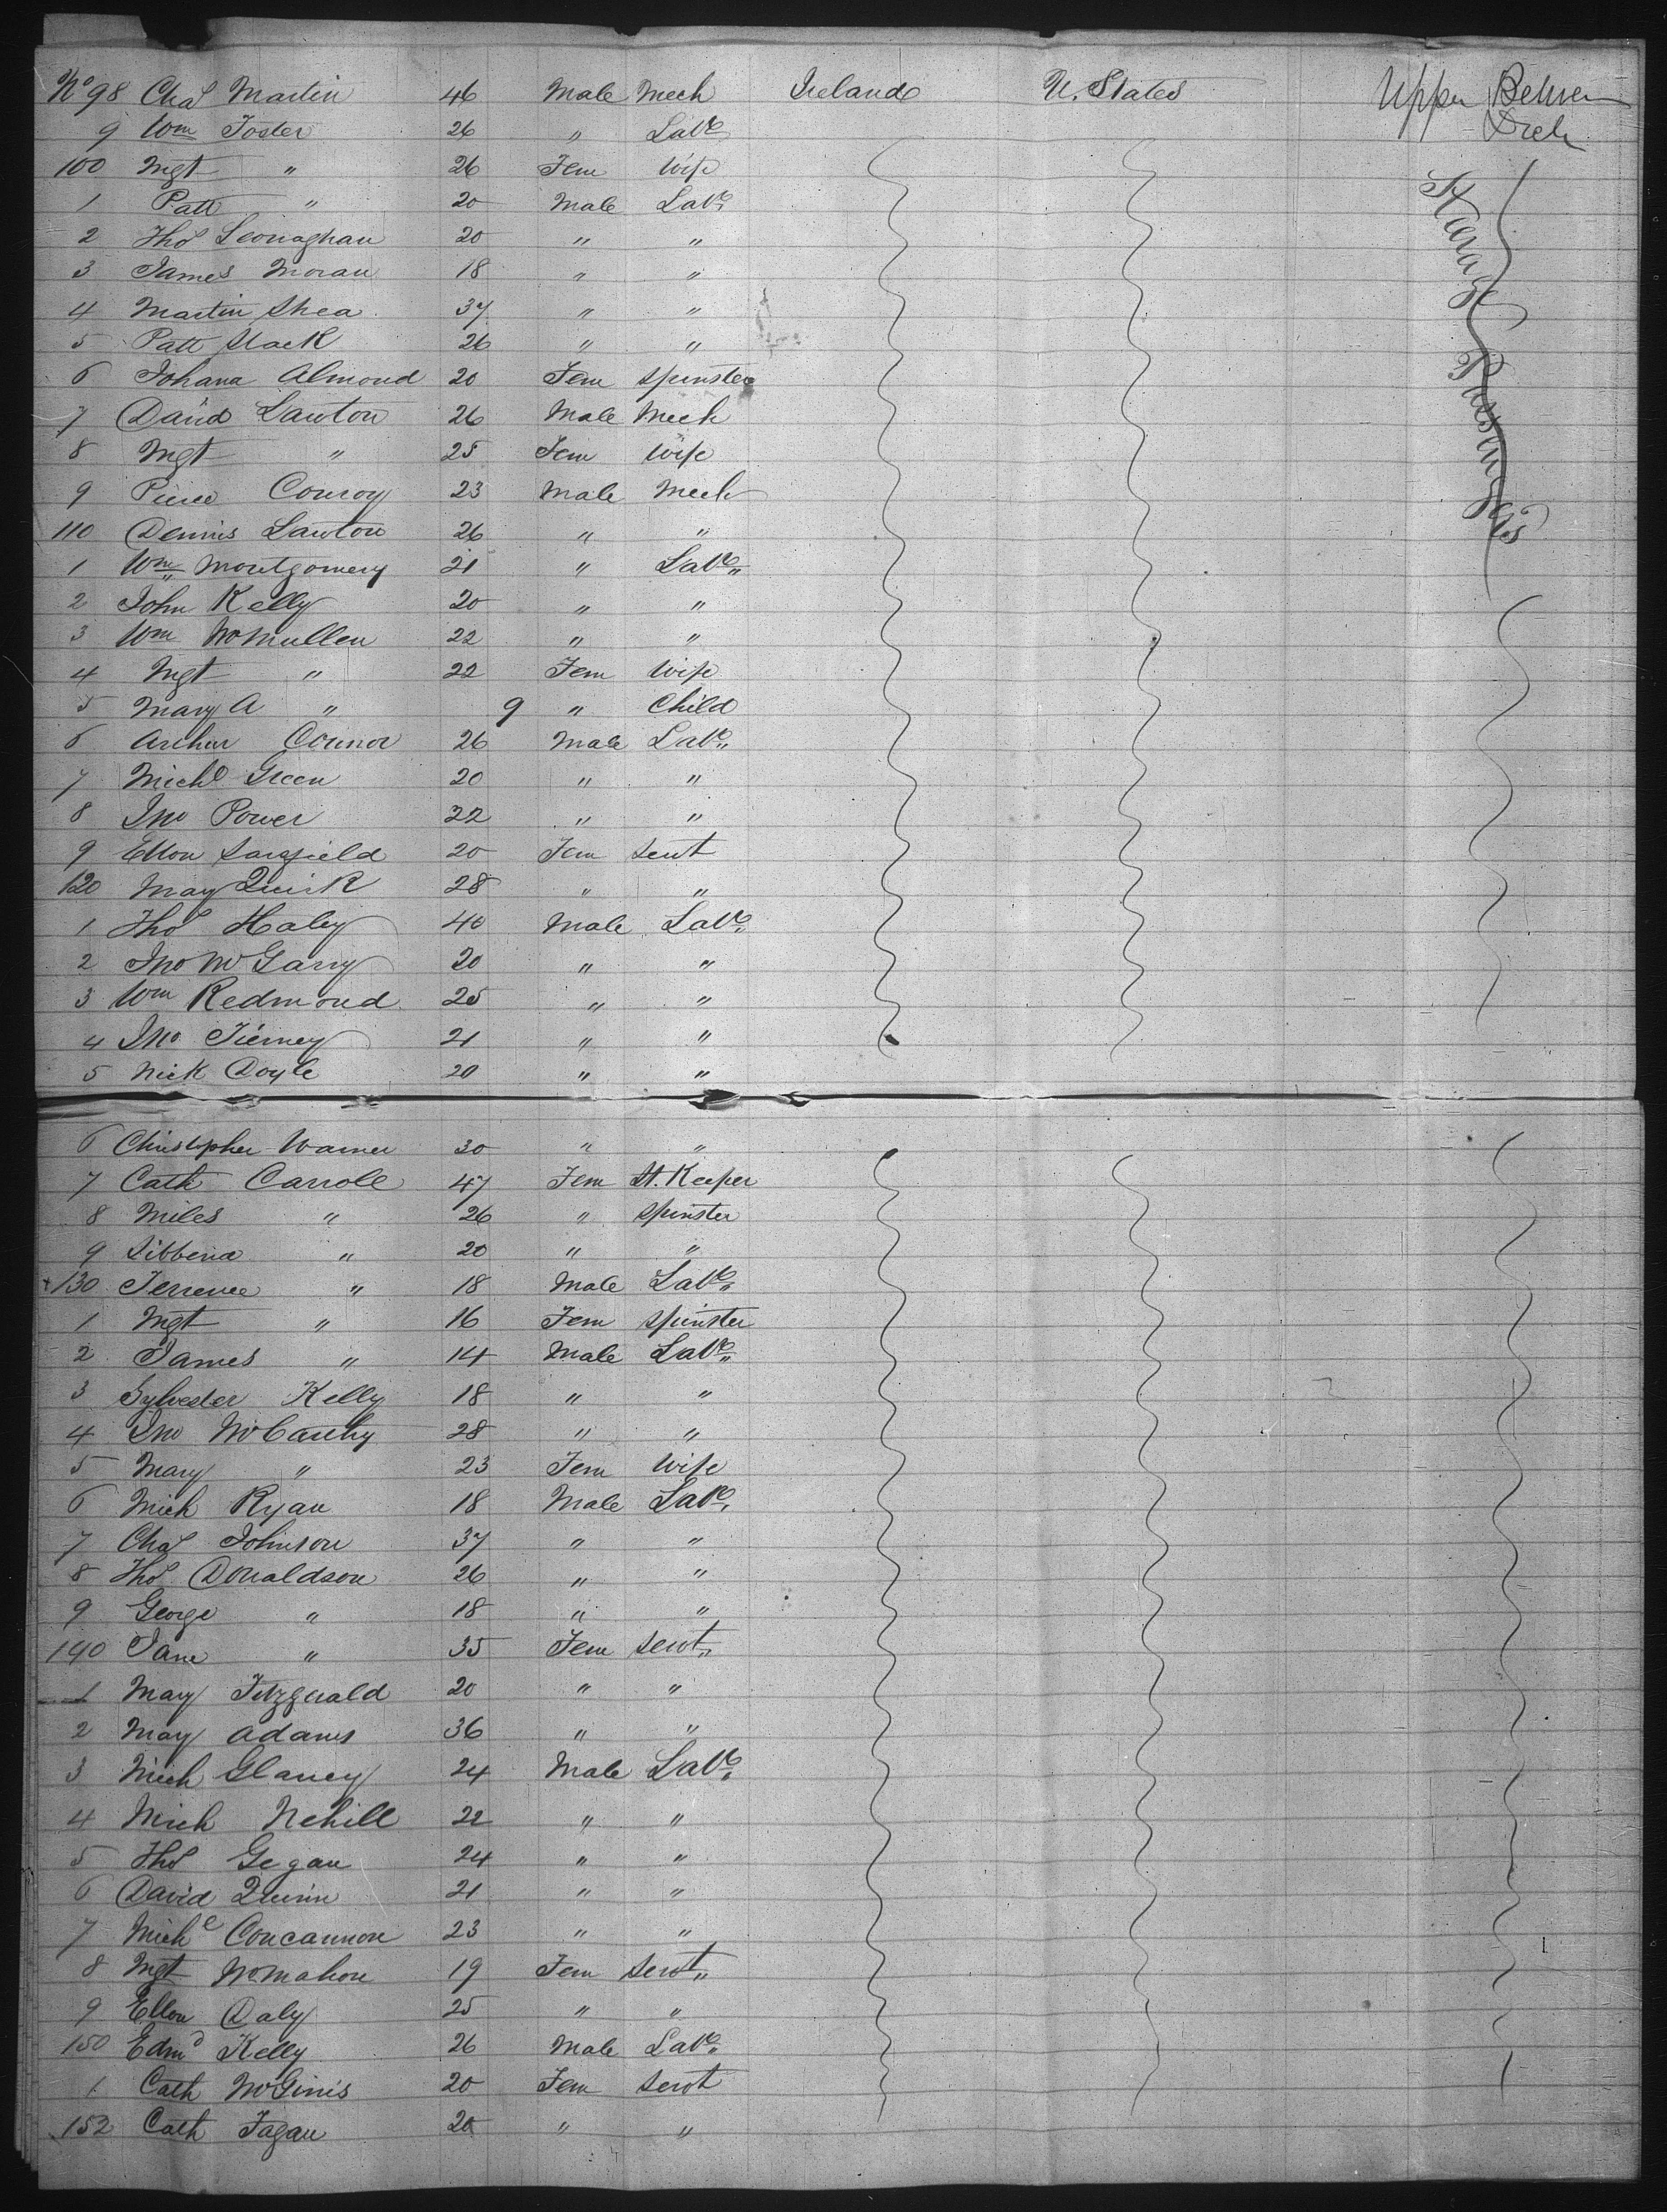 No 98 Chas Martin 46 Male Mech Ireland U. States Upper Between Deck
9 Wm Foster 26 " Labr
100 Mgt " 26 Fem Wife
1 Patt " 20 Male Labr
2 Thos 20 " "
3 James Moran 18 " "
4 Martin Shea 37 " "
5 Patt Slack 26 " "
6 Johana Almond 20 Fem Spinster
7 David Lawton 26 Male Mech
8 Mgt " 25 Fem Wife
9 Pierce Conroy 23 Male Mech
110 Dennis Lawton 26 " "
1 Wm Montgomery 21 " Labr
2 John Kelly 20 " "
3 Wm McMullen 22 " "
4 Mgt " 22 Fem Wife
5 Mary A " 9 " Child
6 Arthur Connor 26 Male Labr
7 Michl Green 20 " "
8 Jno Power 22 " "
9 Ellen Sarsfield 20 Fem Servt
120 Mary Quirk 28 " "
1 Thos Haley 40 Male Labr
2 Jno McGarry 20 " "
3 Wm Redmond 25 " "
4 Jno Tierney 21 " "
5 Nick Doyle 20 " "
6 Christopher Warner 30 " "
7 Cath Carroll 47 Fem H. Keeper
8 Miles " 26 " Spinster
9 Sibbena " 20 " "
130 Terrence " 18 Male Labr
1 Mgt " 16 Fem Spinster
2 James " 14 Male Labr
3 Sylvester Kelly 18 " "
4 Jno McCarthy 28 " "
5 Mary " 23 Fem Wife
6 Mich Ryan 18 Male Labr
7 Chas Johnson 37 " "
8 Thos Donaldson 26 " "
9 George " 18 " "
140 Jane " 35 Fem Servt
1 Mary Fitzgerald 20 " "
2 Mary Adams 36 " "
3 Mich Glancy 24 Male Labr
4 Mich Nehill 22 " "
5 Thos Gegan 24 " "
6 David Quinn 21 " "
7 Michl Concannon 23 " "
8 Mgt McMahon 19 Fem Servt
9 Ellen Daly 25 " "
150 Edmd Kelly 26 Male Labr
1 Cath McGinis 20 Fem Servt
152 Cath Fagan 20 " "
Steerage Passengers